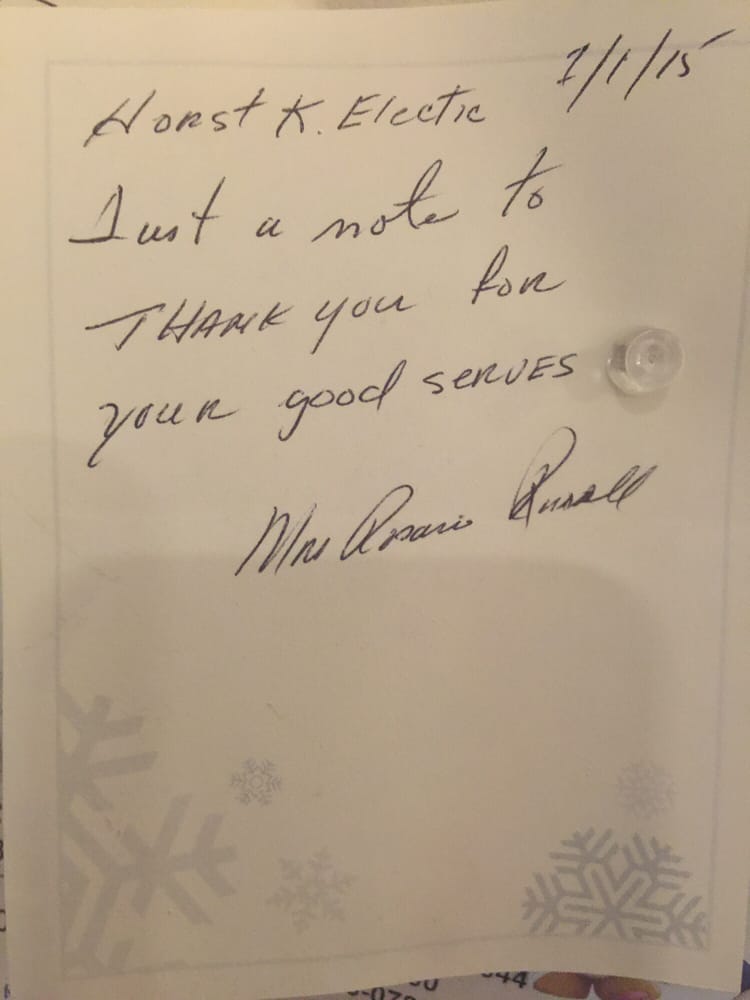 Horst K. Electic 1/1/15
Just a note to
THANK you for
your good SERVES
Mrs Rosario Russell
44